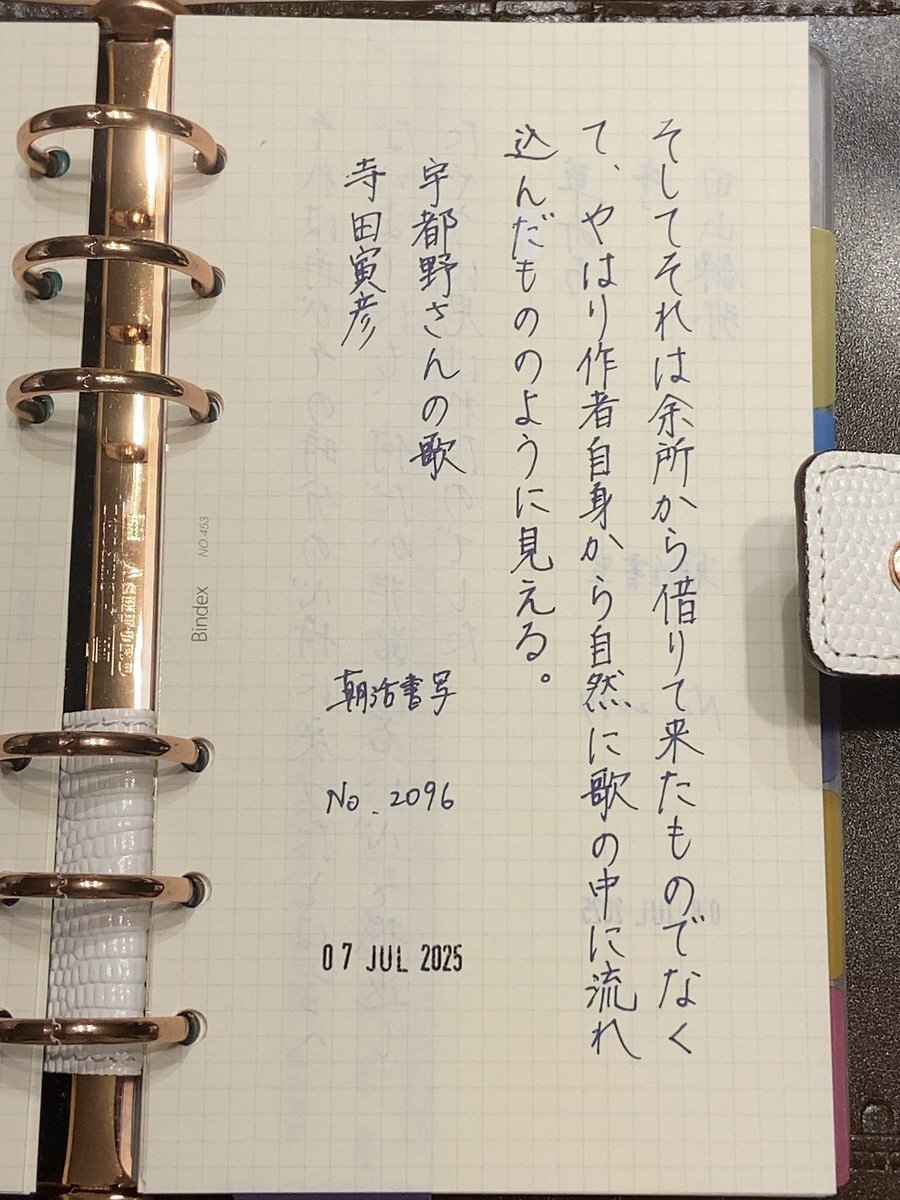 そしてそれは余所から借りて来たものでなく
て、やはり作者自身から自然に歌の中に流れ
込んだもののように見える。
宇都野さんの歌
寺田寅彦
朝活書写
No.2096
07 JUL 2025
Bindex NO.453
ASHFORD